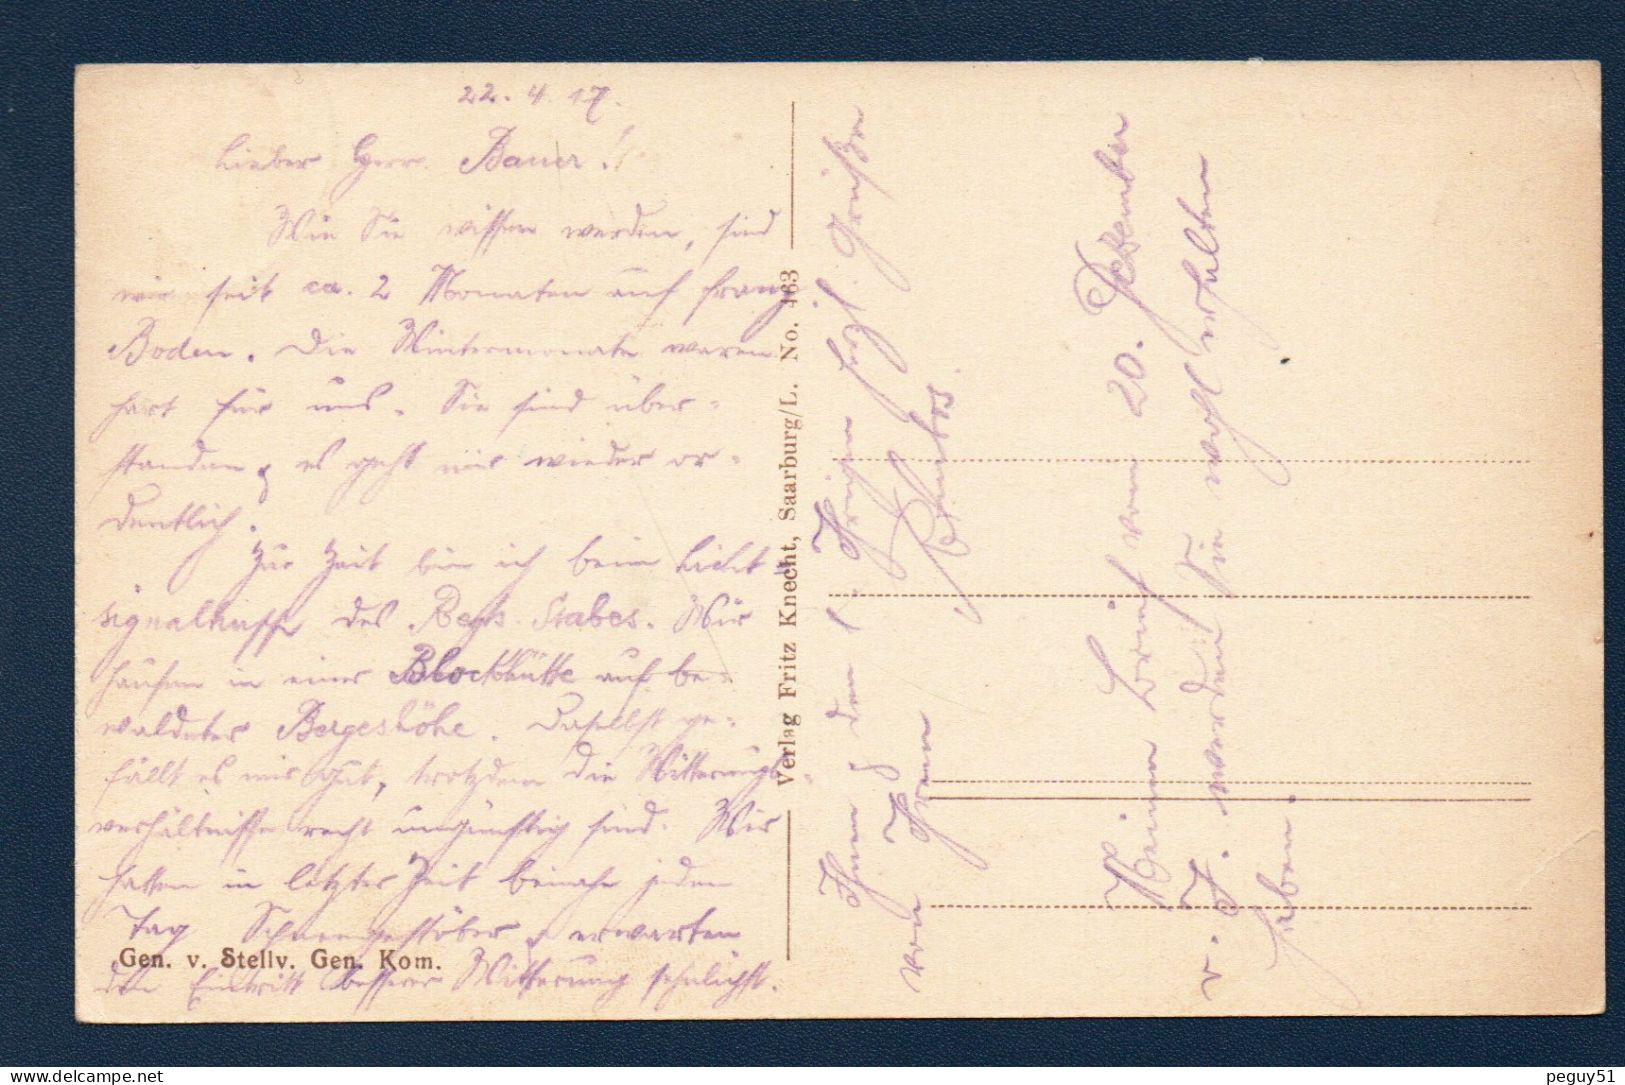 22. 4. 17.
Lieber Herr Bauer!
Wie Sie wissen werden, sind
wir seit ca. 2 Monaten auf franz.
Boden. Die Wintermonate waren
hart für uns. Sie sind über-
standen, es geht mir wieder or-
dentlich.
Zur Zeit bin ich beim Licht-
signaltrupp des Regts. Stabes. Wir
hausen in einer Blockhütte auf be-
waldeter Bergeshöhe. Daselbst ge-
fällt es mir gut, trotzdem die Witterungs-
verhältnisse recht ungünstig sind. Wir
hatten in letzter Zeit beinahe jeden
Tag Schneegestöber & erwarten
den Eintritt besserer Witterung sehnlichst.
Gen. v. Stellv. Gen. Kom.
Verlag Fritz Knecht, Saarburg/L. No. 463
Ihnen & den l. Ihrigen herzl. Grüße
von Ihrem
Meinen Brief vom 20. Dezember
v. J. werden Sie wohl erhalten
haben.
peguy51